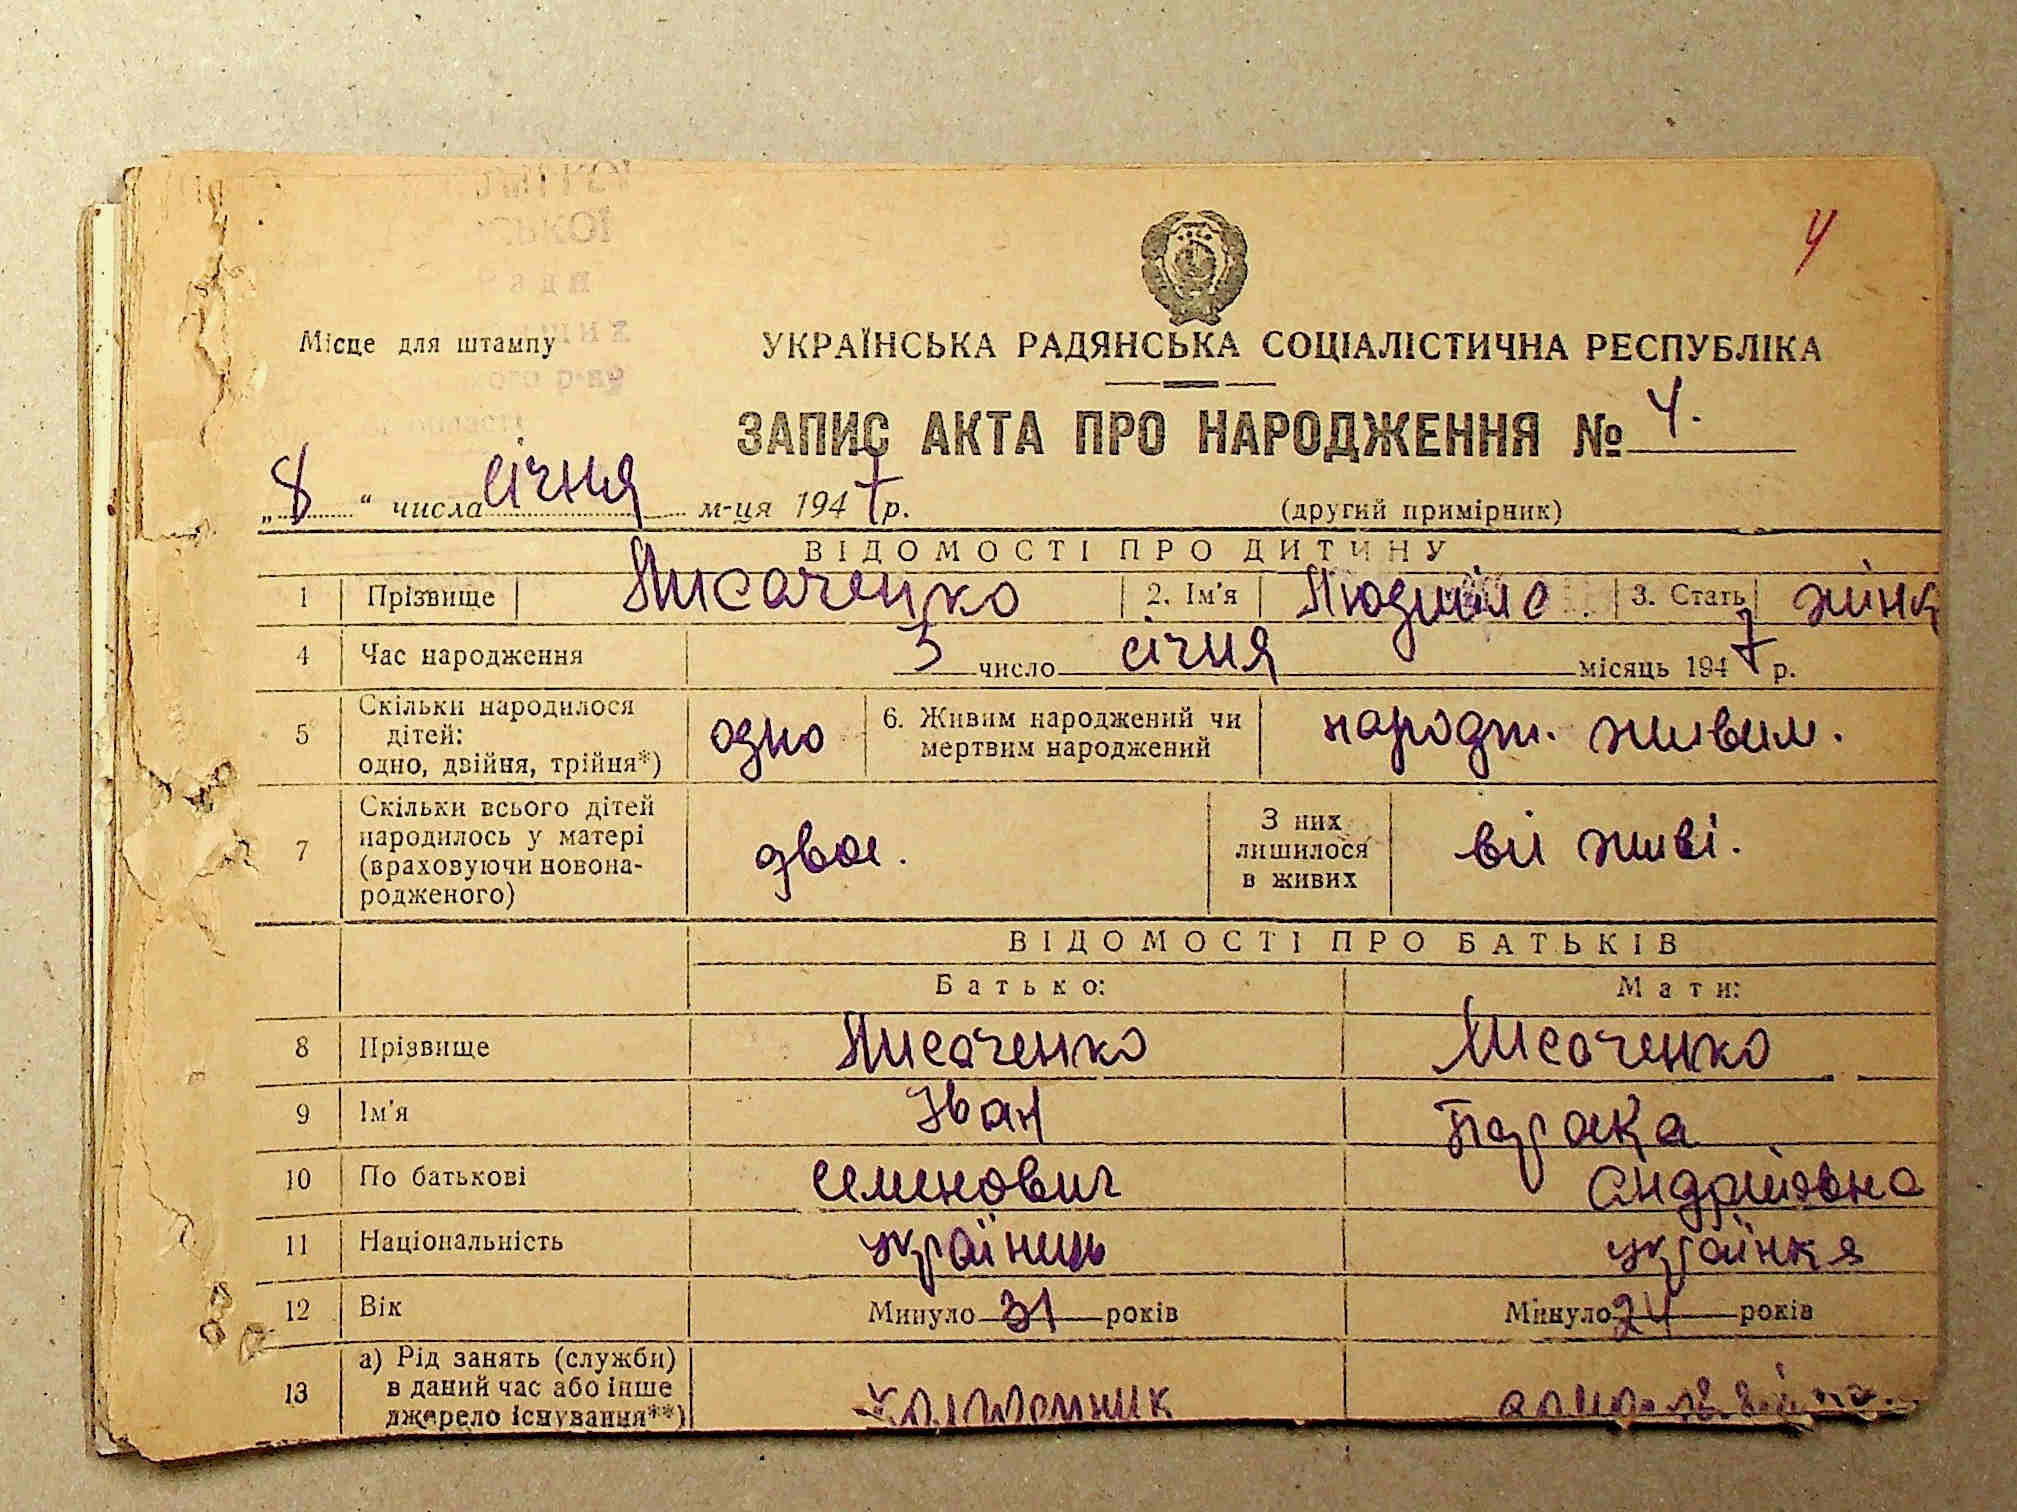 4
Місце для штампу
УКРАЇНСЬКА РАДЯНСЬКА СОЦІАЛІСТИЧНА РЕСПУБЛІКА
ЗАПИС АКТА ПРО НАРОДЖЕННЯ № 4.
„8“ числа січня м-ця 1947 р. (другий примірник)
ВІДОМОСТІ ПРО ДИТИНУ
1 Прізвище Лисаченко 2. Ім'я Людміла 3. Стать жінк
4 Час народження 3 число січня місяць 1947 р.
5 Скільки народилося дітей: одно, двійня, трійня*) одно 6. Живим народжений чи мертвим народжений народж. живим.
7 Скільки всього дітей народилось у матері (враховуючи новонародженого) двоє. З них лишилося в живих всі живі.
ВІДОМОСТІ ПРО БАТЬКІВ
Батько: Мати:
8 Прізвище Лисаченко Лисаченко
9 Ім'я Іван Параска
10 По батькові Семенович Андріївна
11 Національність українець українка
12 Вік Минуло 31 років Минуло 24 років
13 а) Рід занять (служби) в даний час або інше джерело існування**)